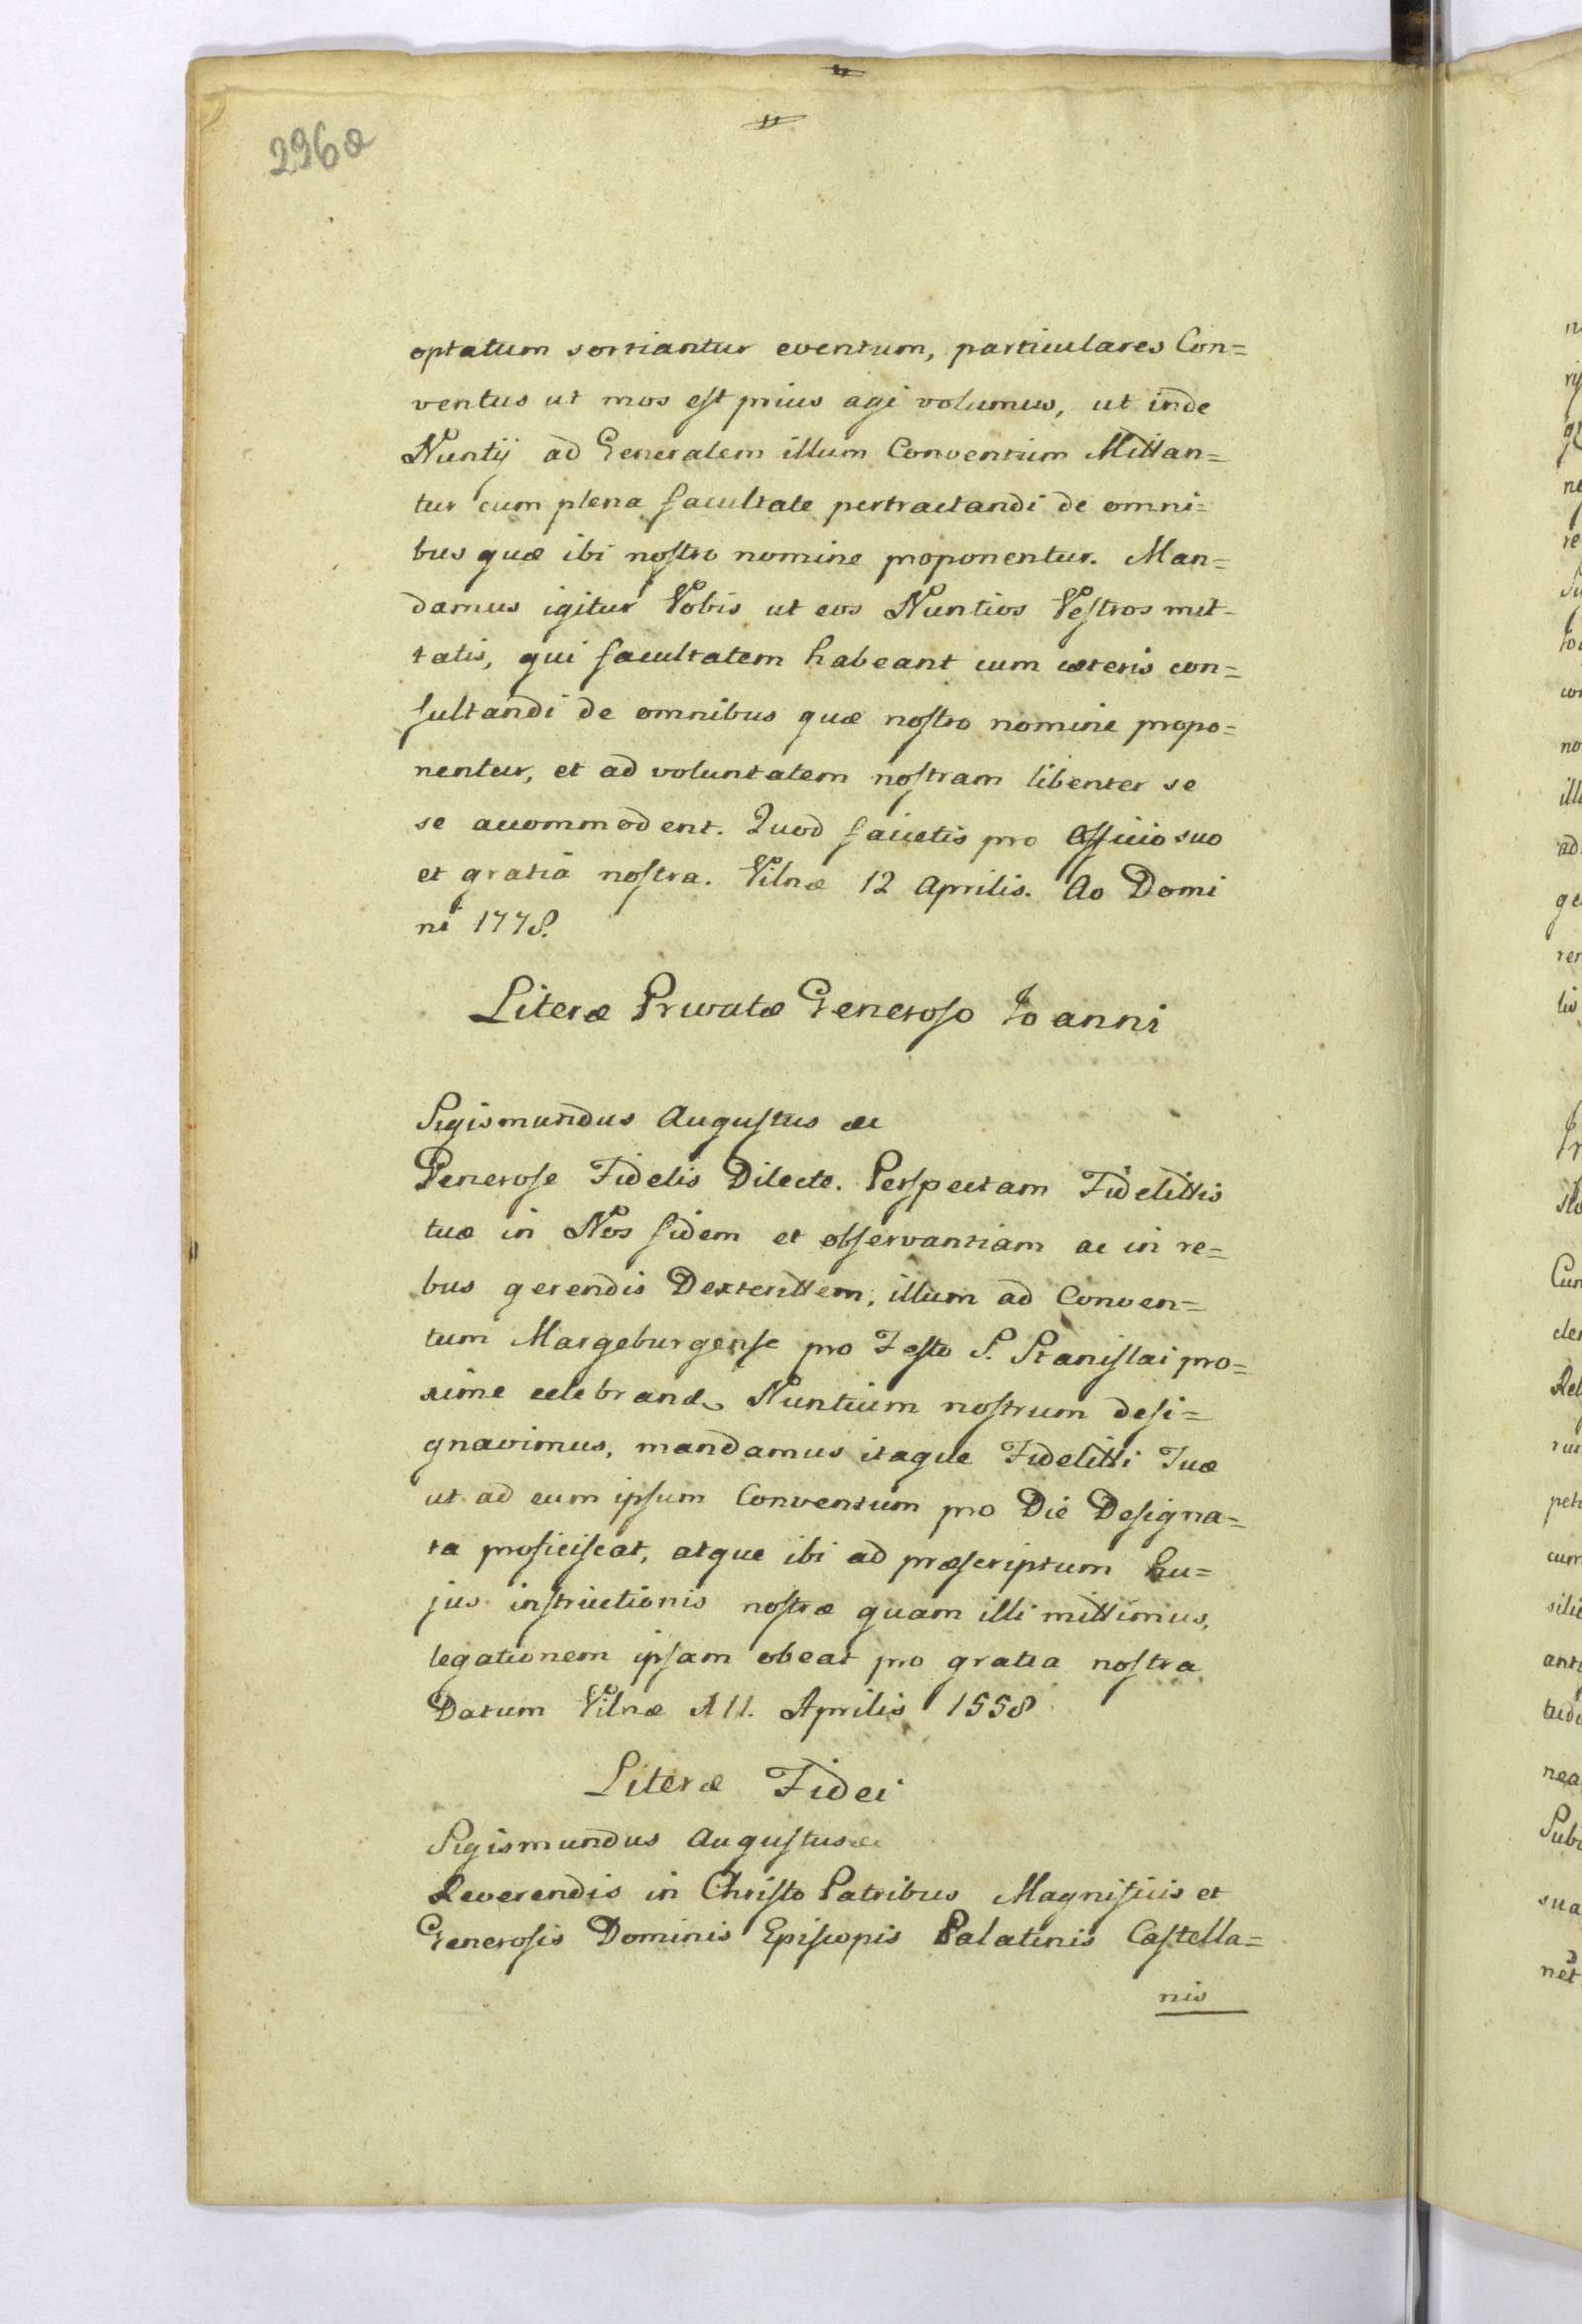 296a
optatum sortiantur eventum, particulares Con=
ventus ut mos est prius agi volumus, ut inde
Nuntij ad Generalem illum Conventum Mittan=
tur cum plena facultate pertractandi de omni=
bus quæ ibi nostro nomine proponentur. Man=
damus igitur Vobis ut eos Nuntios Vestros mit=
tatis, qui facultatem habeant cum cæteris con=
sultandi de omnibus quæ nostro nomine propo=
nentur, et ad voluntatem nostram libenter se
se accommodent. Quod facietis pro Officio suo
et gratia nostra. Vilnæ 12 Aprilis. Ao Domi
ni 1778.
Literæ Privatæ Generoso Joanni
Sigismundus Augustus &c
Generose Fidelis Dilecte. Perspectam Fidelittis
tuæ in Nos fidem et observantiam ac in re=
bus gerendis Dexterittem, illum ad Conven=
tum Margeburgense pro Festo S. Stanislai pro=
xime celebrand. Nuntium nostrum desi=
gnavimus, mandamus itaque Fidelitti Tuæ
ut ad eum ipsum Conventum pro Die Designa=
ta proficiscat, atque ibi ad præscriptum hu=
jus instructionis nostræ quam illi mittimus,
legationem ipsam obeat pro gratia nostra
Datum Vilnæ A 11. Aprilis 1558
Literæ Fidei
Sigismundus Augustus &c
Reverendis in Christo Patribus Magnificis et
Generosis Dominis Episcopis Palatinis Castella=
nis